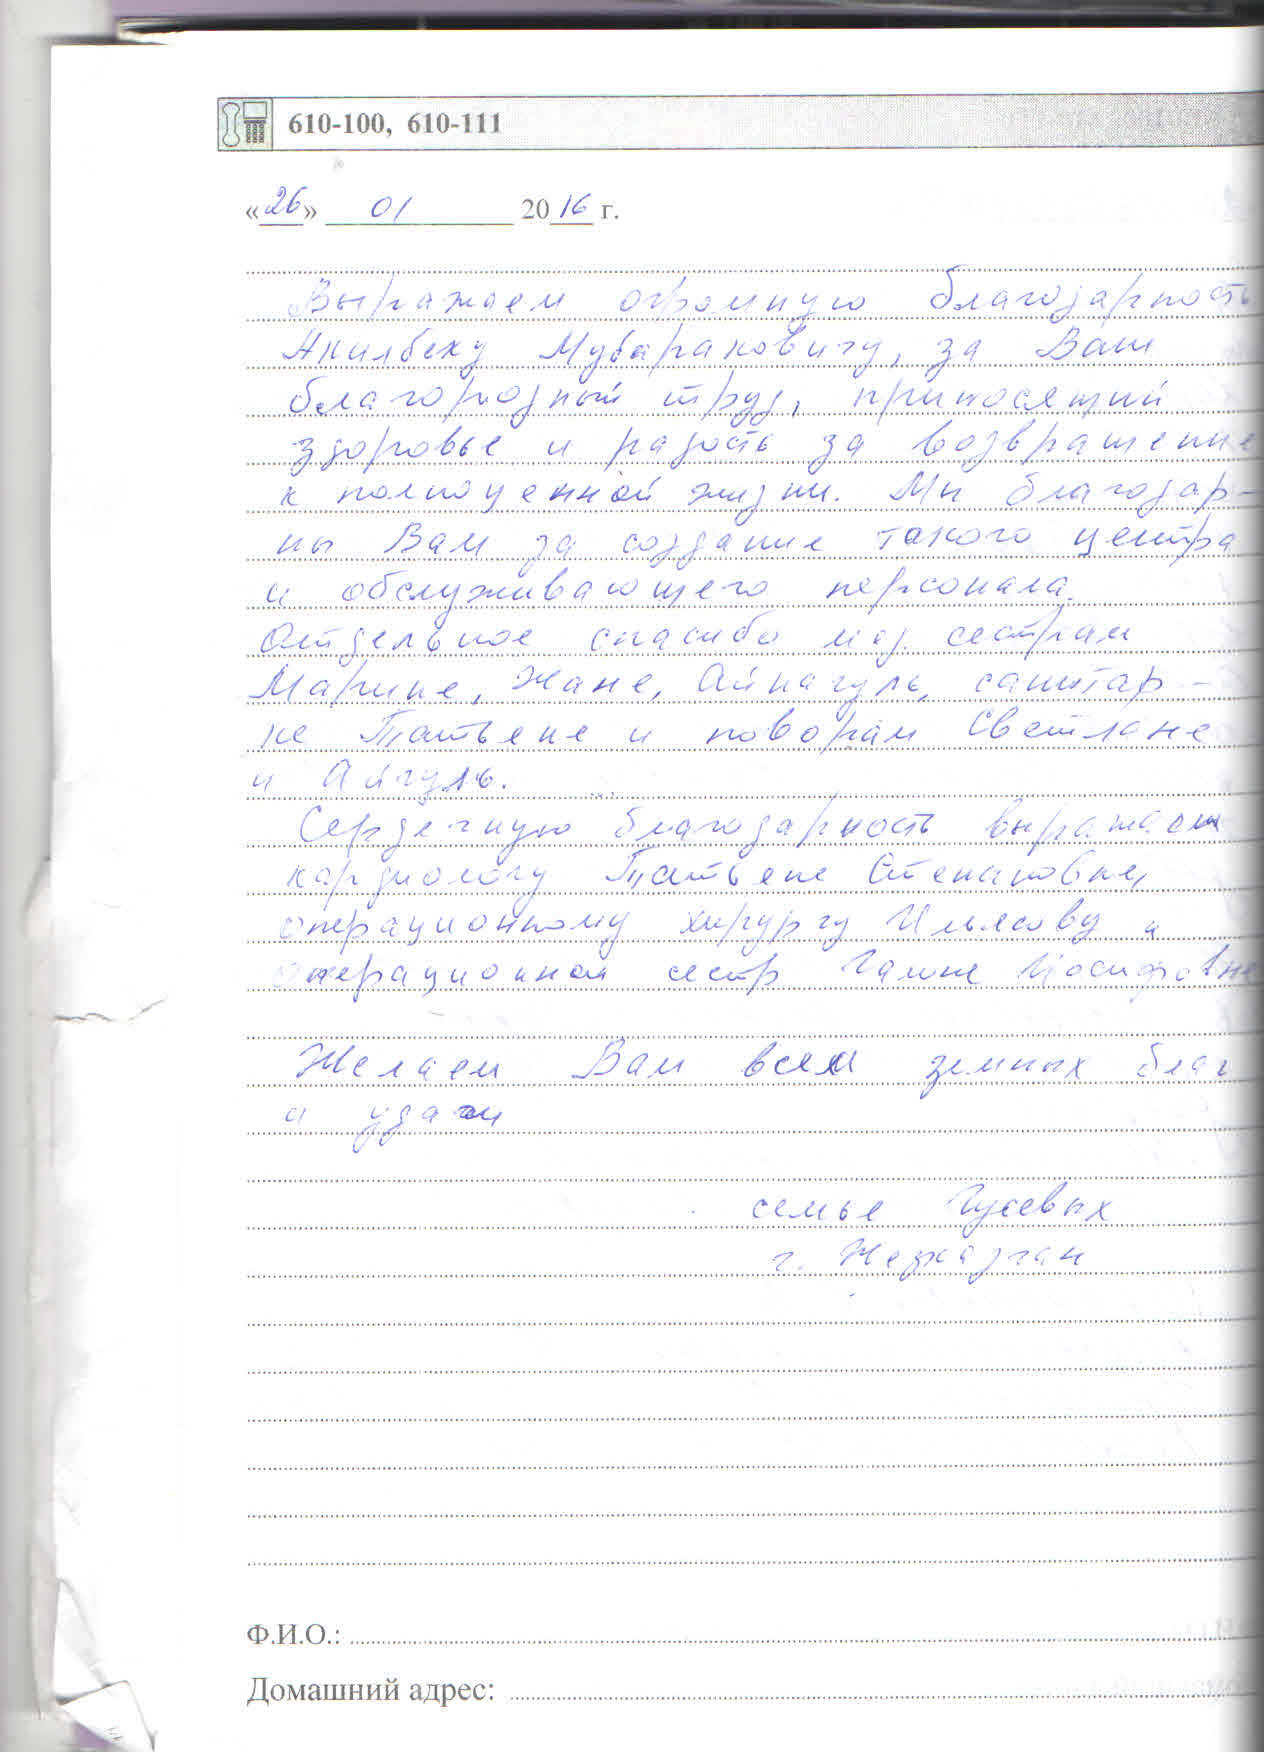 610-100, 610-111
«26» 01 2016 г.
Выражаем огромную благодарность
Акилбеку Мубараковичу, за Ваш
благородный труд, приносящий
здоровье и радость за возвращение
к полноценной жизни. Мы благодар-
ны Вам за создание такого центра
и обслуживающего персонала.
Отдельное спасибо мед. сестрам
Марине, Жане, Айнагуль, санитар-
ке Татьене и поворам Светлане
и Айгуль.
Сердечную благодарность выражаем
кардиологу Татьене Степановне,
операционному хирургу Ильясову и
операционной сестр Галине Иосифовне
Желаем Вам всем земных благ
и удачи
семье Гусевых
г. Жезказган
Ф.И.О.:
Домашний адрес: